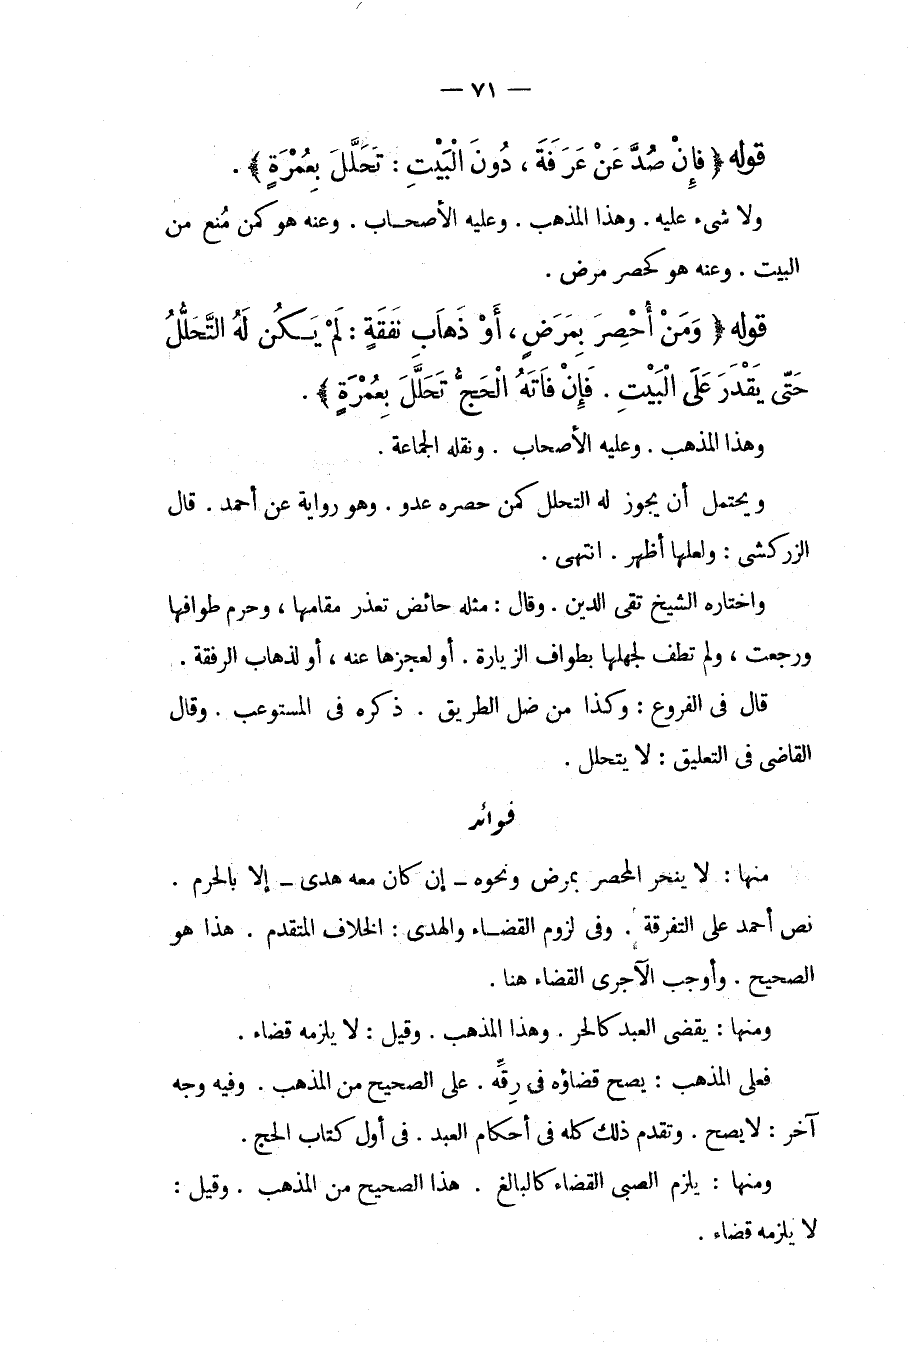 — ٧١ —
قوله ﴿ فَإِنْ صُدَّ عَنْ عَرَفَةَ ، دُونَ الْبَيْتِ : تَحَلَّلَ بِعُمْرَةٍ ﴾ .
ولا شىء عليه . وهذا المذهب . وعليه الأصحاب . وعنه هو كمن مُنع من
البيت . وعنه هو كحصر مرض .
قوله ﴿ وَمَنْ أُحْصِرَ بِمَرَضٍ ، أَوْ ذَهابِ نَفَقَةٍ : لَمْ يَكُن لَهُ التَّحَلُّلُ
حَتَّى يَقْدَرَ عَلَى الْبَيْتِ . فَإِنْ فَاتَهُ الْحَجُّ تَحَلَّلَ بِعُمْرَةٍ ﴾ .
وهذا المذهب . وعليه الأصحاب . ونقله الجماعة .
ويحتمل أن يجوز له التحلل كمن حصره عدو . وهو رواية عن أحمد . قال
الزركشى : ولعلها أظهر . انتهى .
واختاره الشيخ تقى الدين . وقال : مثله حائض تعذر مقامها ، وحرم طوافها
ورجعت ، ولم تطف لجهلها بطواف الزيارة . أو لعجزها عنه ، أو لذهاب الرفقة .
قال فى الفروع : وكذا من ضل الطريق . ذكره فى المستوعب . وقال
القاضى فى التعليق : لا يتحلل .
فوائد
منها : لا ينحر المحصر بمرض ونحوه – إن كان معه هدى – إلا بالحرم .
نص أحمد على التفرقة . وفى لزوم القضاء والهدى : الخلاف المتقدم . هذا هو
الصحيح . وأوجب الآجرى القضاء هنا .
ومنها : يقضى العبد كالحر . وهذا المذهب . وقيل : لا يلزمه قضاء .
فعلى المذهب : يصح قضاؤه فى رِقِّه . على الصحيح من المذهب . وفيه وجه
آخر : لا يصح . وتقدم ذلك كله فى أحكام العبد . فى أول كتاب الحج .
ومنها : يلزم الصبى القضاء كالبالغ . هذا الصحيح من المذهب . وقيل :
لا يلزمه قضاء .